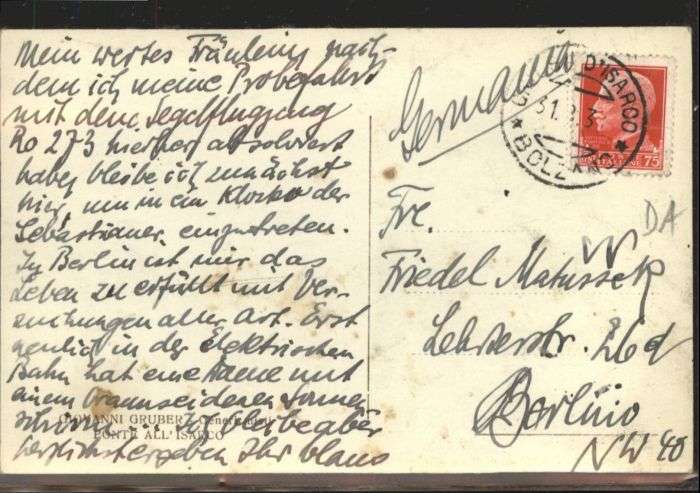 Mein wertes Fräulein, nach-
dem ich meine Probefahrt
mit dem Segelflugzeug
Ro 273 hierher absolviert
habe, bleibe ich zunächst
hier, um in ein Kloster der
Sebastianer einzutreten.
In Berlin ist mir das
Leben zu erfüllt mit Ver-
suchungen aller Art. Erst
neulich in der Elektrischen
Bahn hat eine Dame mit
einem braunseidenen Sonnen-
schirm ... Ich bleibe aber
herzlichst ergeben Ihr Claus
GIOVANNI GRUBER, Generi misti
PONTE ALL'ISARCO
Germania
D'ISARCO
31.8.3
BOLZANO
ITALIANE 75
Fr.
Friedel Matussek
Lehrterstr. 26d
Berlino
NW 40
W
DA